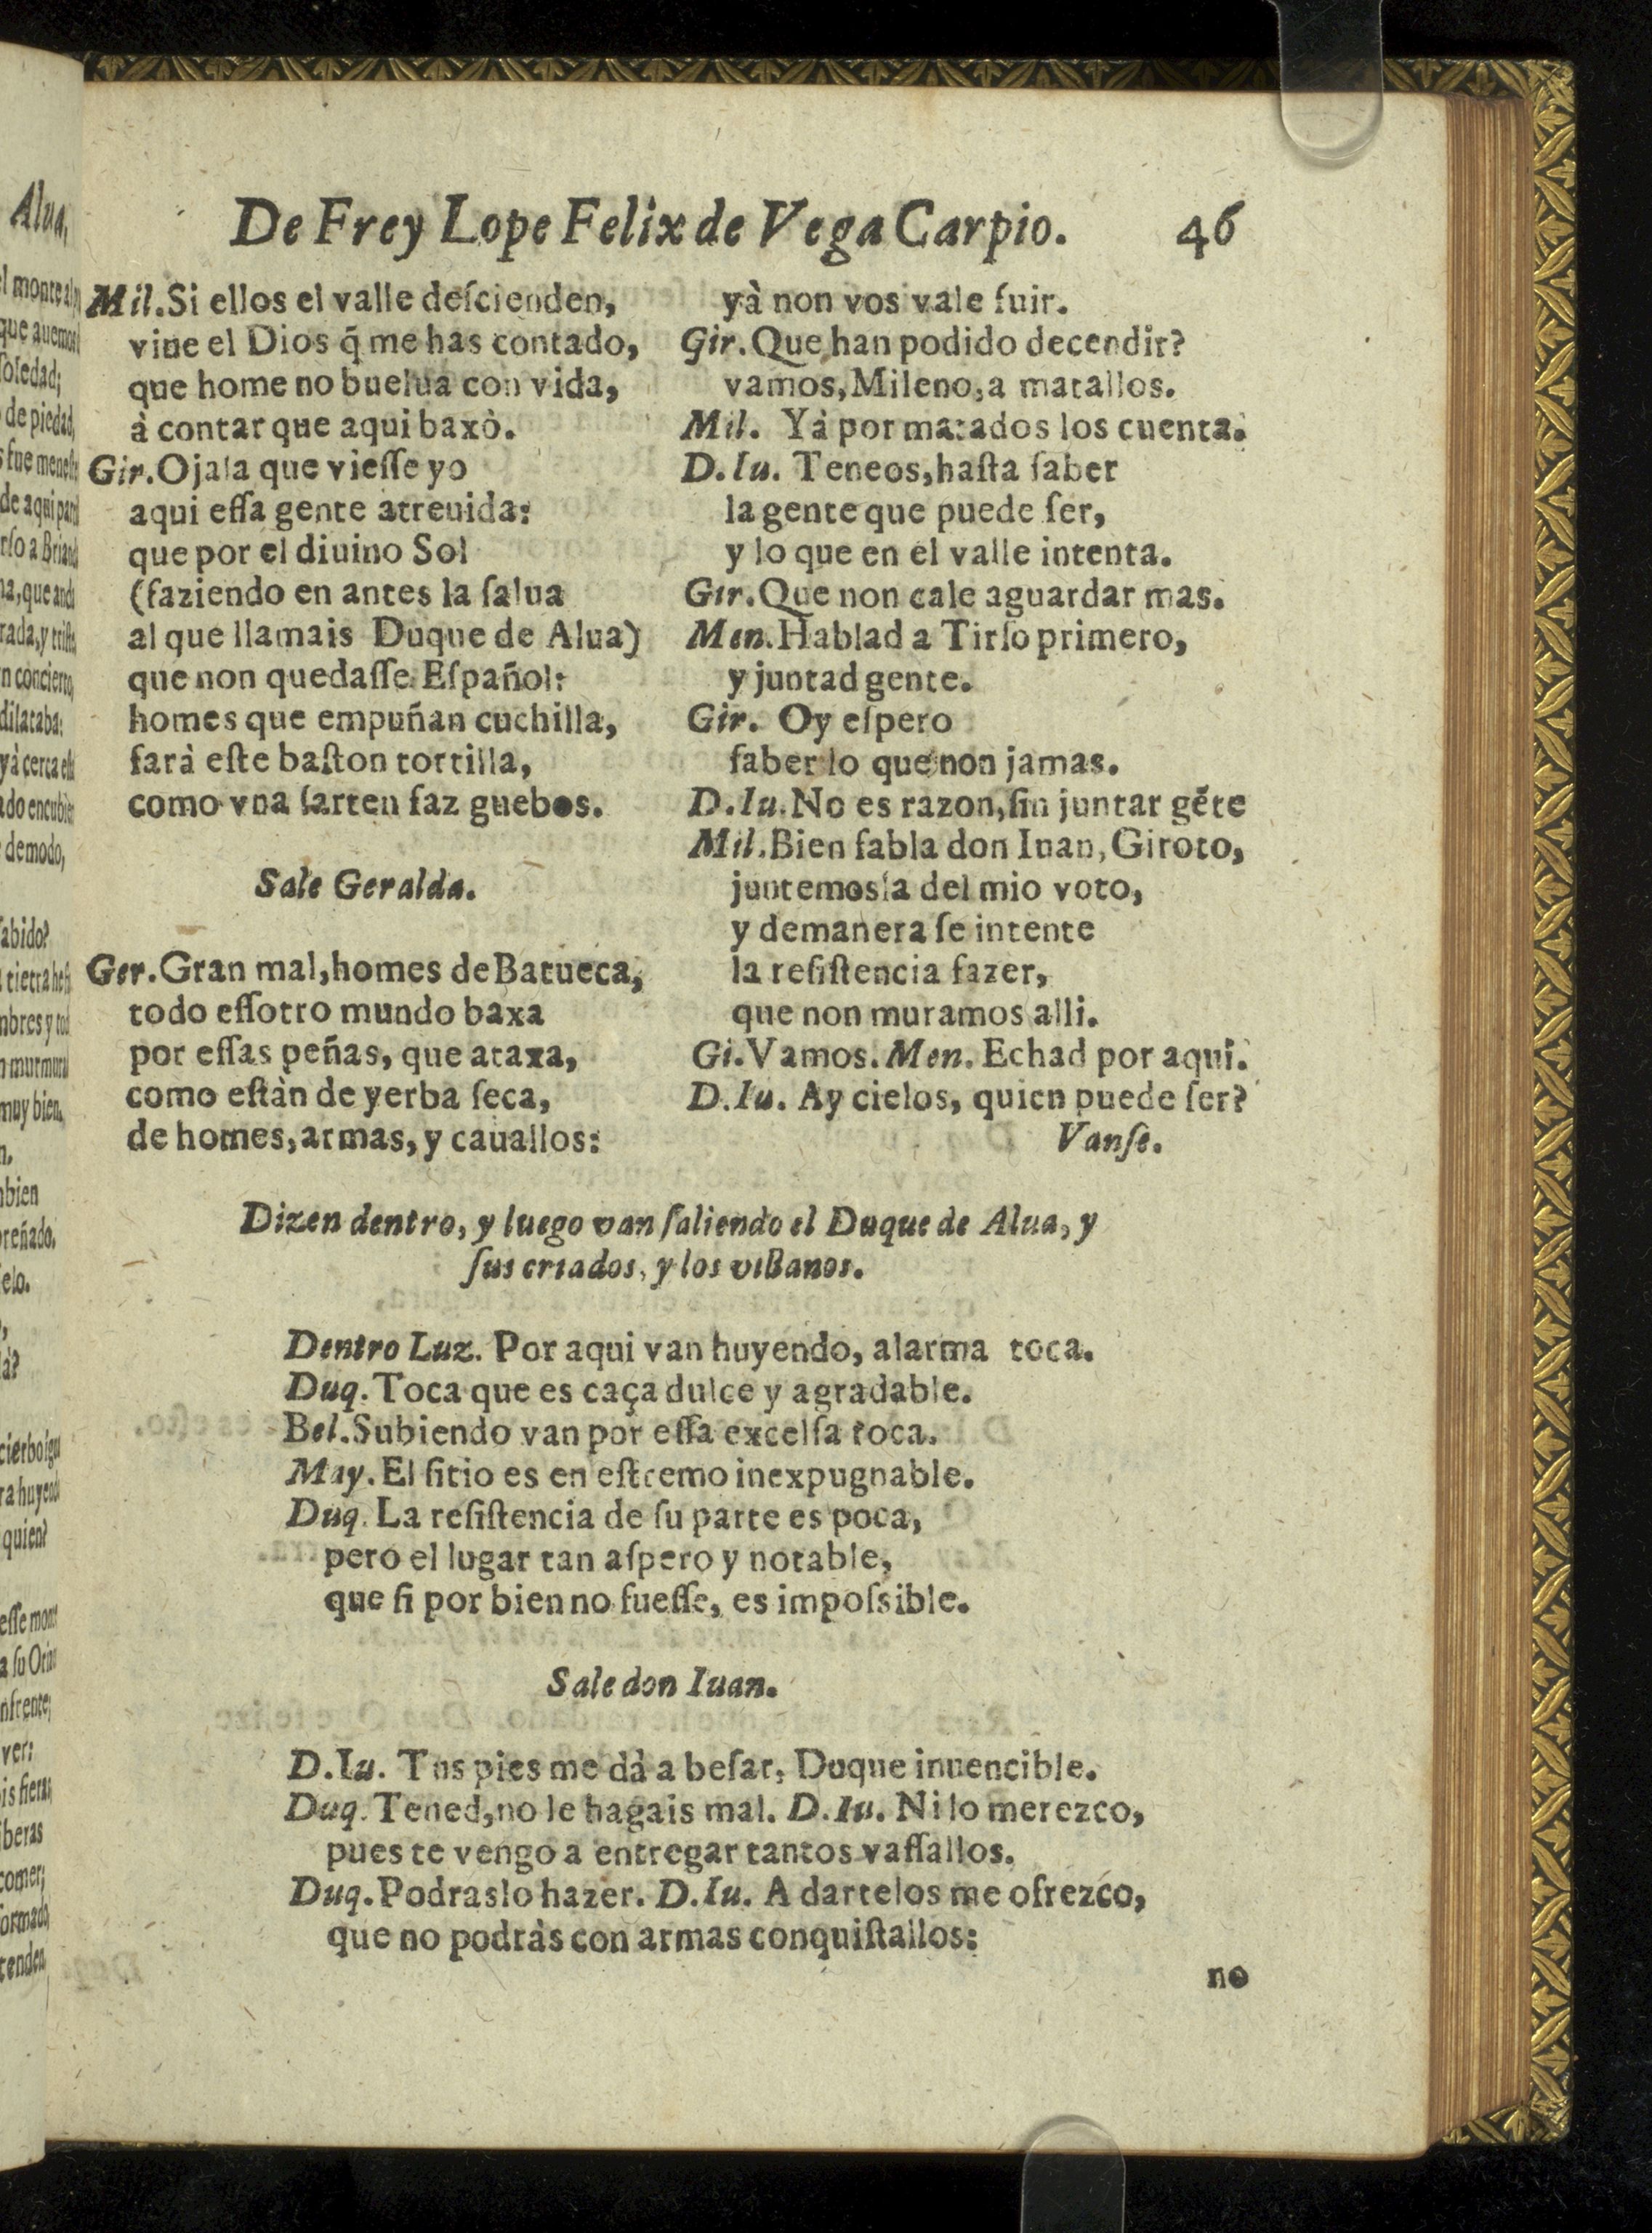 De Frey Lope Felix de Vega Carpio. 46
Mil. Si ellos el valle deſcienden,
viue el Dios q̃ me has contado,
que home no buelua con vida,
à contar que aqui baxò.
Gir. Ojala que vieſſe yo
aqui eſſa gente atreuida:
que por el diuino Sol
(faziendo en antes la ſalua
al que llamais Duque de Alua)
que non quedaſſe Eſpañol:
homes que empuñan cuchilla,
farà eſte baſton tortilla,
como vna ſarten faz guebos.
Sale Geralda.
Ger. Gran mal, homes de Batueca,
todo eſſotro mundo baxa
por eſſas peñas, que ataxa,
como eſtàn de yerba ſeca,
de homes, armas, y cauallos:
yà non vos vale fuir.
Gir. Que han podido decendir?
vamos, Mileno, a matallos.
Mil. Yà por matados los cuenta.
D. Iu. Teneos, haſta ſaber
la gente que puede ſer,
y lo que en el valle intenta.
Gir. Que non cale aguardar mas.
Men. Hablad a Tirſo primero,
y juntad gente.
Gir. Oy eſpero
faber lo que non jamas.
D. Iu. No es razon, ſin juntar gẽte
Mil. Bien fabla don Iuan, Giroto,
juntemosla del mio voto,
y demanera ſe intente
la reſiſtencia fazer,
que non muramos alli.
Gi. Vamos. Men. Echad por aqui.
D. Iu. Ay cielos, quien puede ſer?
Vanſe.
Dizen dentro, y luego van ſaliendo el Duque de Alua, y
ſus criados, y los villanos.
Dentro Luz. Por aqui van huyendo, alarma toca.
Duq. Toca que es caça dulce y agradable.
Bel. Subiendo van por eſſa excelſa roca.
May. El ſitio es en eſtremo inexpugnable.
Duq. La reſiſtencia de ſu parte es poca,
pero el lugar tan aſpero y notable,
que ſi por bien no fueſſe, es impoſsible.
Sale don Iuan.
D. Iu. Tus pies me dà a beſar, Duque inuencible.
Duq. Tened, no le hagais mal. D. Iu. Ni lo merezco,
pues te vengo a entregar tantos vaſſallos.
Duq. Podraslo hazer. D. Iu. A dartelos me ofrezco,
que no podràs con armas conquiſtallos:
no